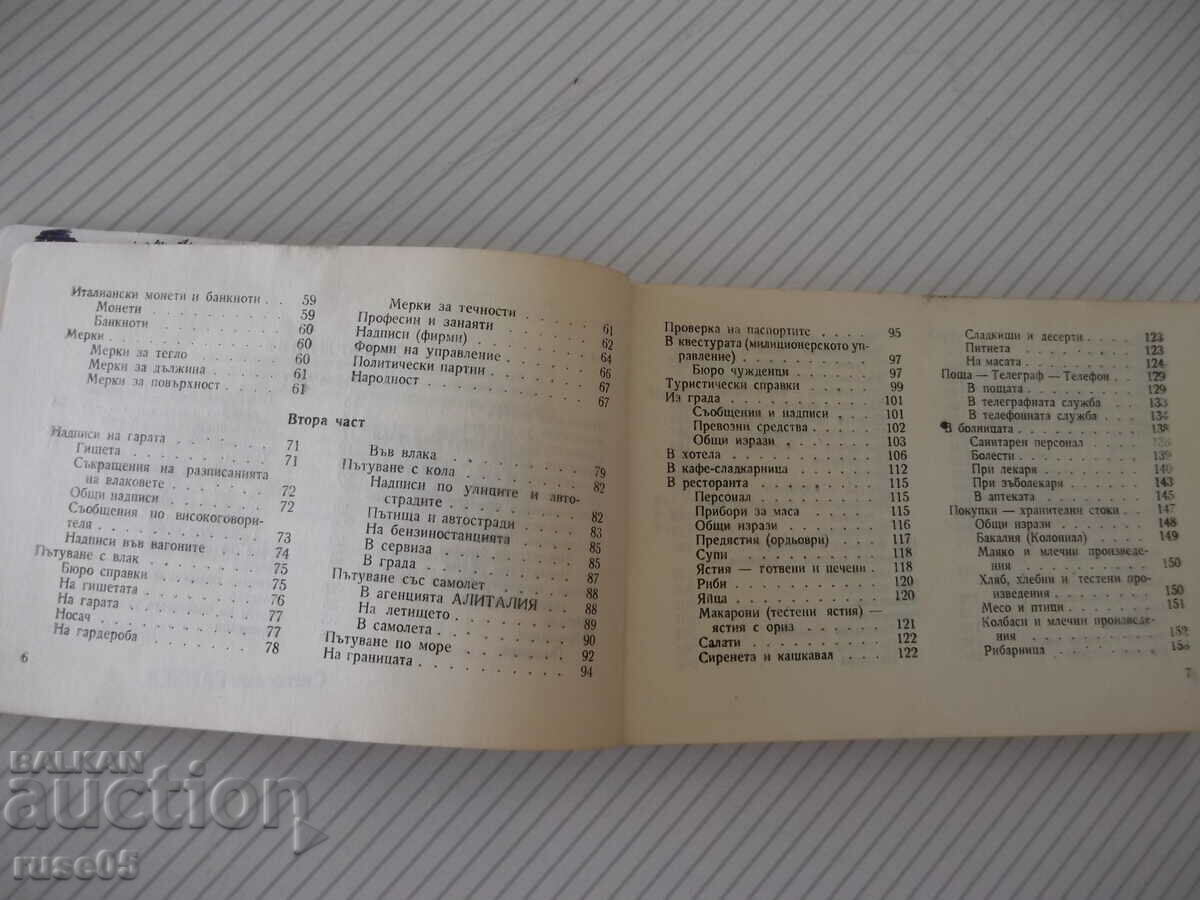 Италиански монети и банкноти . . 59
Монети . . . . . . . . 59
Банкноти . . . . . . . 60
Мерки . . . . . . . . . 60
Мерки за тегло . . . . . 60
Мерки за дължина . . . . 61
Мерки за повърхност . . . 61
Мерки за течности . . . . 61
Професии и занаяти . . . . 62
Надписи (фирми) . . . . . 64
Форми на управление . . . . 66
Политически партии . . . . 67
Народност . . . . . . . 67
Втора част
Надписи на гарата . . . . . 71
Гишета . . . . . . . . 71
Съкращения на разписанията
на влаковете . . . . . . 72
Общи надписи . . . . . . 72
Съобщения по високоговори-
теля . . . . . . . . . 73
Надписи във вагоните . . . 74
Пътуване с влак . . . . . 75
Бюро справки . . . . . . 75
На гишетата . . . . . . 76
На гарата . . . . . . . 77
Носач . . . . . . . . 77
На гардероба . . . . . . 78
6
Във влака . . . . . . . 79
Пътуване с кола . . . . . 82
Надписи по улиците и авто-
страдите . . . . . . . 82
Пътища и автостради . . . 83
На бензиностанцията . . . 85
В сервиза . . . . . . . 85
В града . . . . . . . 87
Пътуване със самолет . . . . 88
В агенцията АЛИТАЛИЯ . . 88
На летището . . . . . . 89
В самолета . . . . . . . 90
Пътуване по море . . . . . 92
На границата . . . . . . . 94
Проверка на паспортите . . . . 95
В квестурата (милиционерското уп-
равление) . . . . . . . 97
Бюро чужденци . . . . . 97
Туристически справки . . . . 99
Из града . . . . . . . . 101
Съобщения и надписи . . . 101
Превозни средства . . . . 102
Общи изрази . . . . . . 103
В хотела . . . . . . . . 106
В кафе-сладкарница . . . . 112
В ресторанта . . . . . . . 115
Персонал . . . . . . . 115
Прибори за маса . . . . . 115
Общи изрази . . . . . . 116
Предястия (ордьоври) . . . 117
Супи . . . . . . . . . 118
Ястия — готвени и печени . . 118
Риби . . . . . . . . . 120
Яйца . . . . . . . . . 120
Макарони (тестени ястия) —
ястия с ориз . . . . . . 121
Салати . . . . . . . . 122
Сиренета и кашкавал . . . 122
Сладкиши и десерти . . . . 123
Питиета . . . . . . . . 123
На масата . . . . . . . 124
Поща — Телеграф — Телефон . . 129
В пощата . . . . . . . 129
В телеграфната служба . . . 133
В телефонната служба . . . 134
В болницата . . . . . . . 138
Санитарен персонал . . . .
Болести . . . . . . . . 139
При лекаря . . . . . . . 140
При зъболекаря . . . . . 143
В аптеката . . . . . . . 145
Покупки — хранителни стоки . . 147
Общи изрази . . . . . . 148
Бакалия (Колониал) . . . . 149
Мляко и млечни произведе-
ния . . . . . . . . . 150
Хляб, хлебни и тестени про-
изведения . . . . . . . 150
Месо и птици . . . . . . 151
Колбаси и млечни произведе-
ния . . . . . . . . . 152
Рибарница . . . . . . . 153
7
BALKAN
auction
ruse05